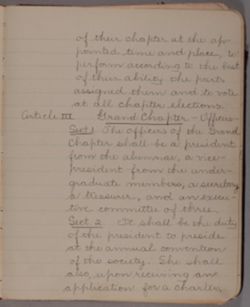 of their chapter at the ap-
pointed time and place, to
perform according to the best
of their ability the parts
assigned them and to vote
at all chapter elections.
Article III Grand Chapter - Officers
Sect 1. The officers of the Grand
Chapter shall be a president
from the alumnae, a vice-
president from the under-
graduate members, a secretary,
a treasurer, and an execu-
tive committee of three.
Sect. 2. It shall be the duty
of the president to preside
at the annual convention
of the society. She shall
also, upon receiving an
application for a charter,